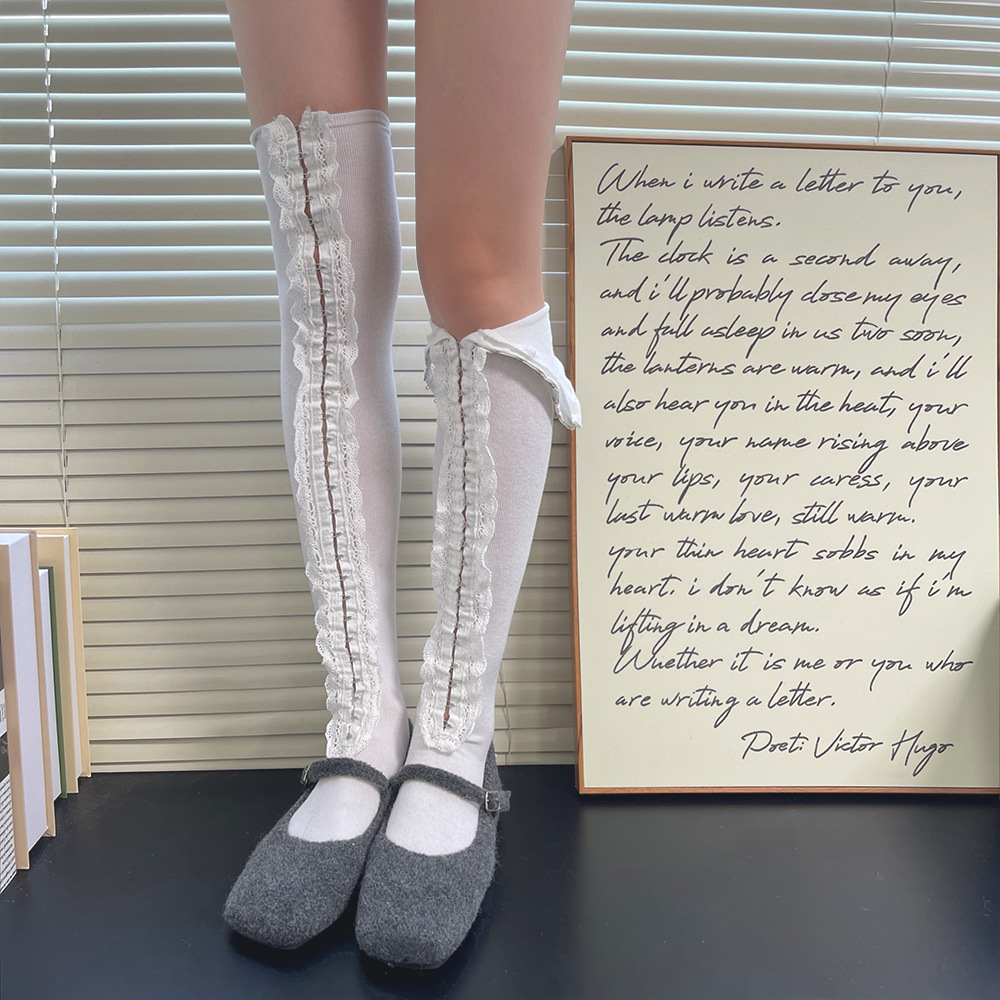 When i write a letter to you,
the lamp listens.
The clock is a second away,
and i'll probably close my eyes
and fall asleep in us two soon,
the lanterns are warm, and i'll
also hear you in the heat, your
voice, your name rising above
your lips, your caress, your
last warm love, still warm.
your thin heart sobbs in my
heart. i don't know as if i'm
lifting in a dream.
Whether it is me or you who
are writing a letter.
Poet: Victor Hugo